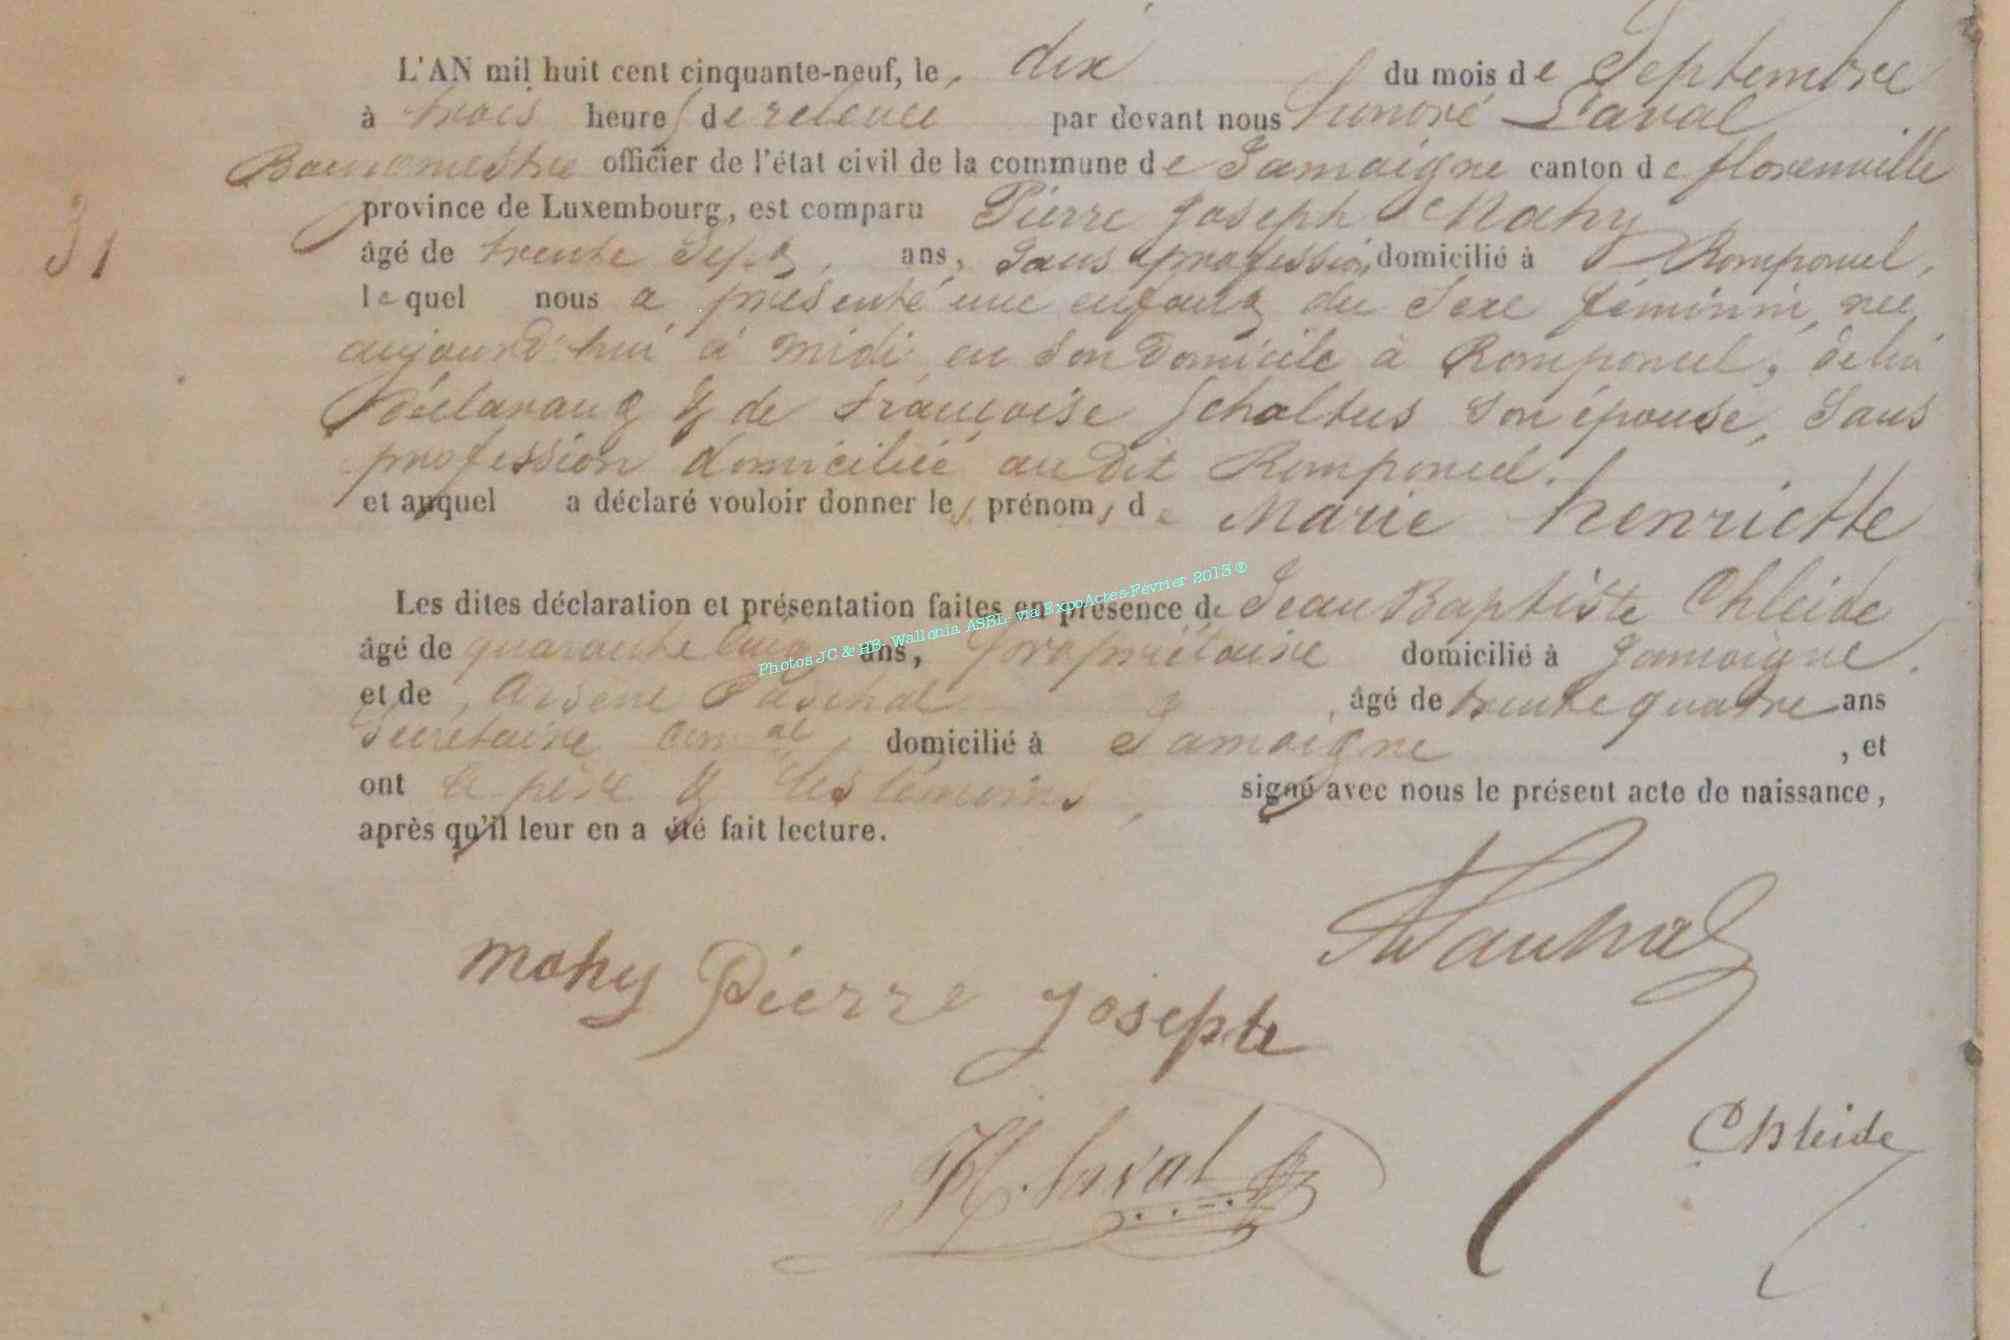 L'AN mil huit cent cinquante-neuf, le dix du mois de Septembre
à trois heures de relevée par devant nous honoré Laval
Bourgmestre officier de l'état civil de la commune de Jamoigne canton de florenville
province de Luxembourg, est comparu Pierre Joseph Mahy
31
âgé de trente Sept ans, Sans profession, domicilié à Romponcel,
lequel nous a présenté une enfant du Sexe féminin, née
aujourd'hui à midi en Son Domicile à Romponcel, de lui
Déclarant & de Françoise Scholtus Son épouse, Sans
profession domiciliée au Dit Romponcel.
et auquel a déclaré vouloir donner les prénoms de Marie henriette
Les dites déclaration et présentation faites en présence de Jean Baptiste Chleide
Photos JC & HB- Wallonia ASBL- via ExpoActes-Février 2013 ®
âgé de quarante cinq ans, Propriétaire domicilié à Jamoigne.
et de Arsène , âgé de trente quatre ans
Secrétaire Comal, domicilié à Jamoigne , et
ont le père & les témoins, signé avec nous le présent acte de naissance,
après qu'il leur en a été fait lecture.
mahy Pierre Josephe
Chleide
H. Laval